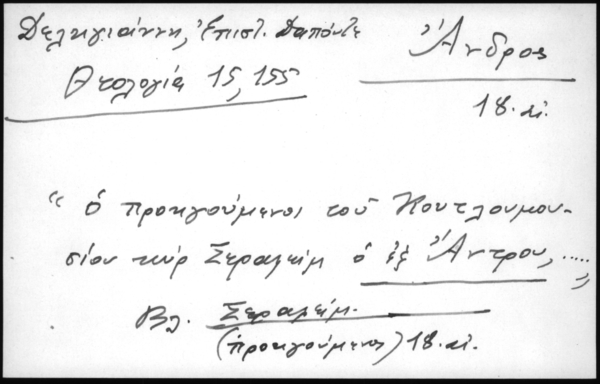 Δεληγιάννη, Ἐπιστ. Δαπόντε
Θεολογία 15, 155
Ἄνδρος
18. αἰ.
“ ὁ προηγούμενος τοῦ Κουτλουμου-
σίου κὺρ Σεραφεὶμ ὁ ἐξ Ἄντρου, .....„
Βλ. Σεραφείμ.
(προηγούμενος) 18. αἰ.